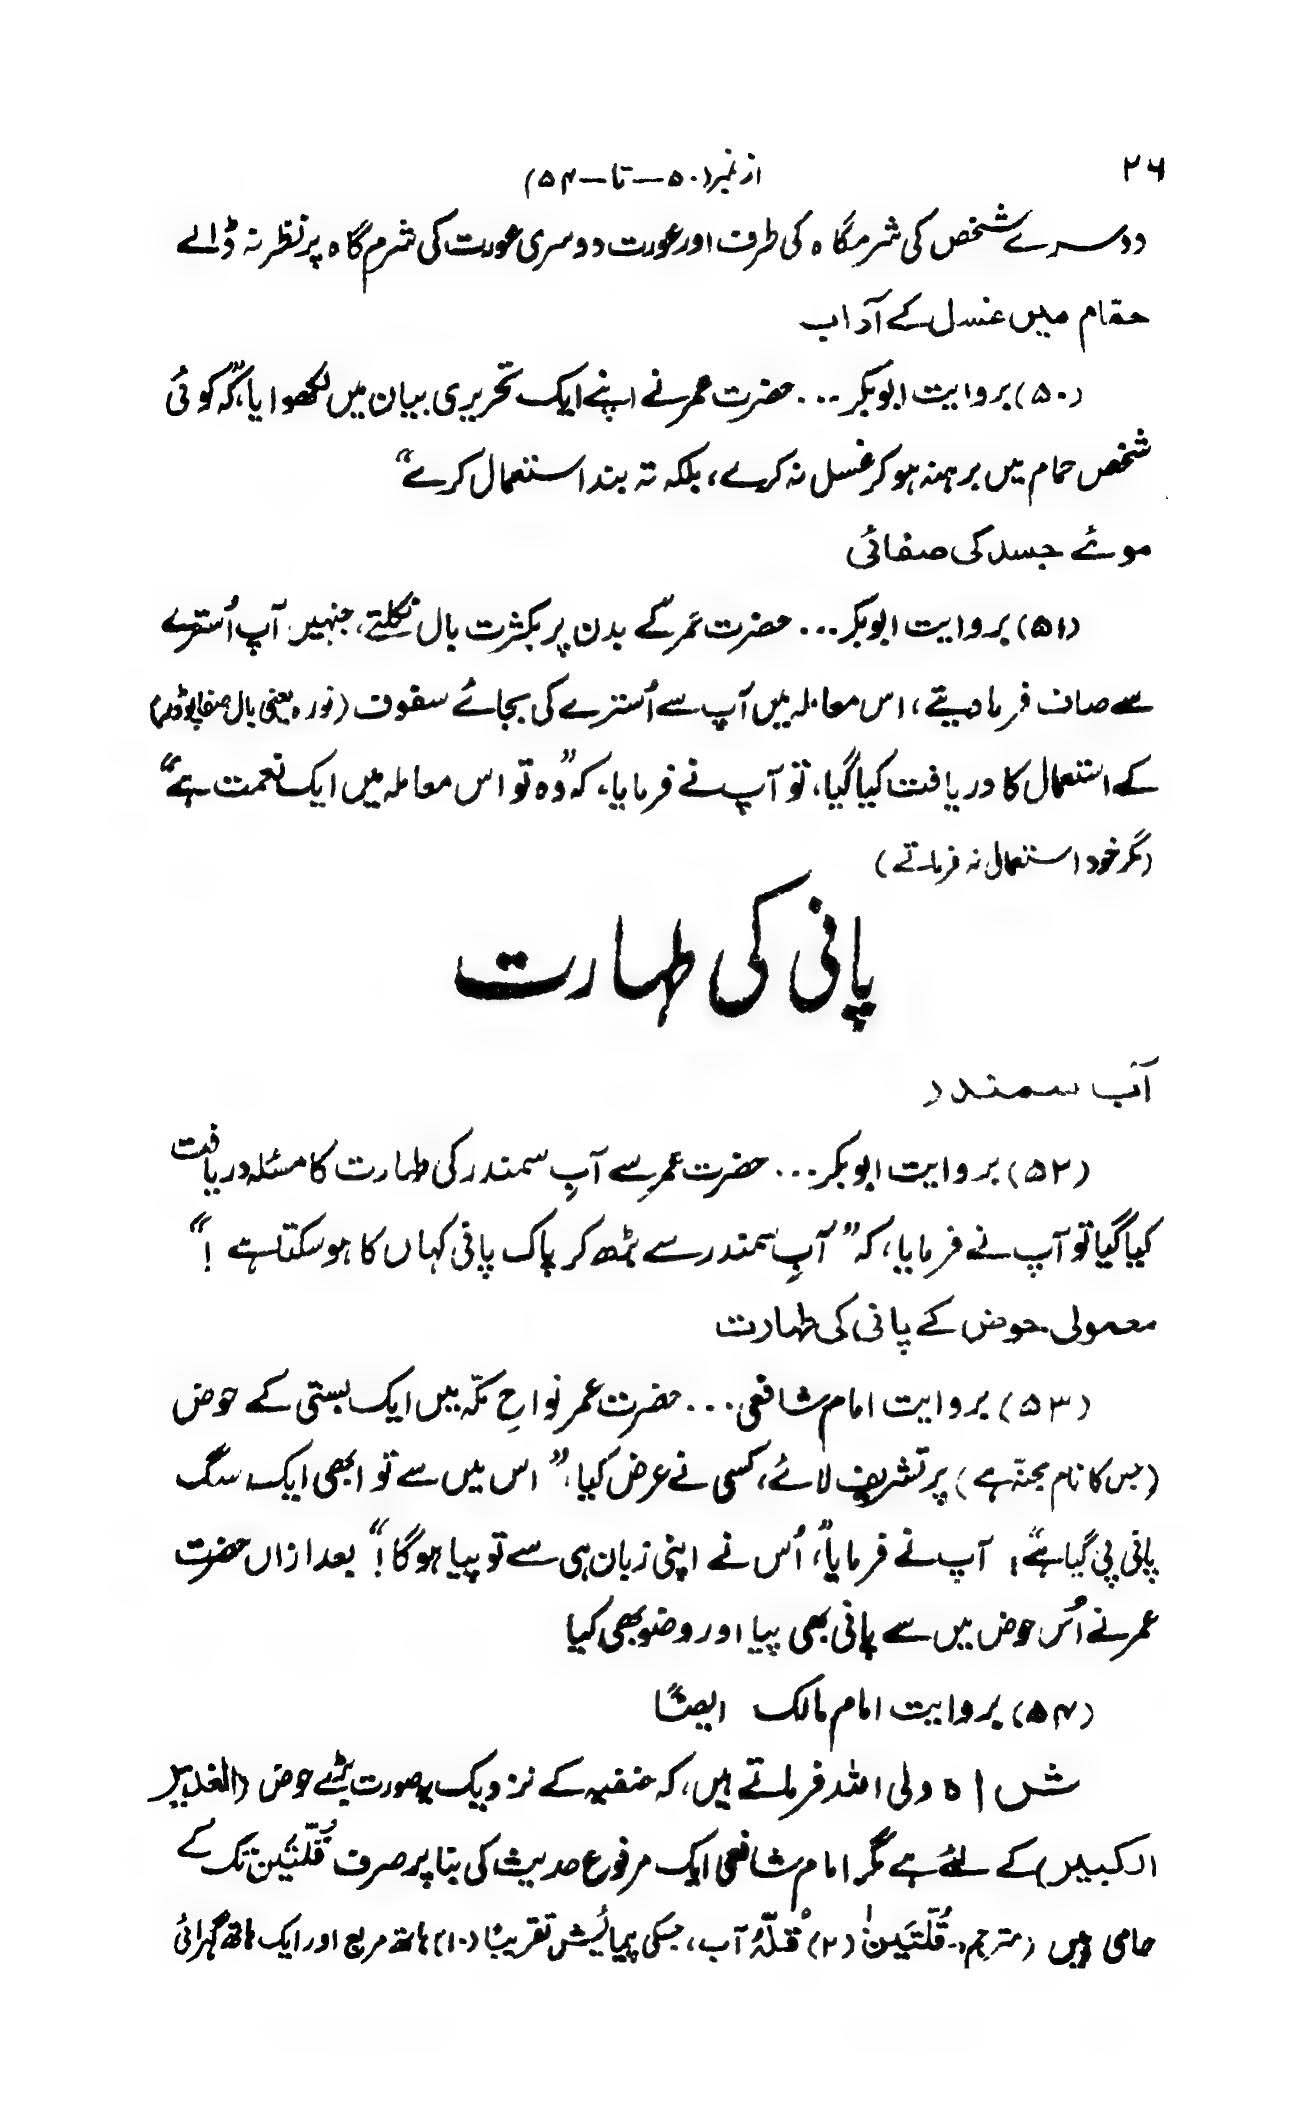 ۲۶
از نمبر (۵۰ – تا – ۵۴)
دوسرے شخص کی شرمگاہ کی طرف اور عورت دوسری عورت کی شرم گاہ پر نظر نہ ڈالے
حمّام میں غسل کے آداب
(۵۰) بروایت ابوبکر ... حضرت عمر نے اپنے ایک تحریری بیان میں لکھوایا، کہ ”کوئی
شخص حمام میں برہنہ ہو کر غسل نہ کرے، بلکہ تہ بند استعمال کرے“
موئے جسد کی صفائی
(۵۱) بروایت ابوبکر ... حضرت عمر کے بدن پر بکثرت بال نکلتے، جنہیں آپ اُسترے
سے صاف فرما دیتے، اس معاملہ میں آپ سے اُسترے کی بجائے سفوف (نورہ یعنی بال صفا پوڈر)
کے استعمال کا دریافت کیا گیا، تو آپ نے فرمایا، کہ ”وہ تو اس معاملہ میں ایک نعمت ہے“
(مگر خود استعمال نہ فرماتے)
پانی کی طہارت
آب سمندر
(۵۲) بروایت ابوبکر ... حضرت عمر سے آبِ سمندر کی طہارت کا مسئلہ دریافت
کیا گیا تو آپ نے فرمایا، کہ ”آبِ سمندر سے بڑھ کر پاک پانی کہاں کا ہو سکتا ہے !“
معمولی حوض کے پانی کی طہارت
(۵۳) بروایت امام شافعی ... حضرت عمر نواحِ مکّہ میں ایک بستی کے حوض
(جس کا نام مجنّہ ہے) پر تشریف لائے، کسی نے عرض کیا، ”اس میں سے تو ابھی ایک سگ
پانی پی گیا ہے“! آپ نے فرمایا، ”اُس نے اپنی زبان ہی سے تو پیا ہوگا!“ بعد ازاں حضرت
عمر نے اُس حوض میں سے پانی بھی پیا اور وضو بھی کیا
(۵۴) بروایت امام مالک ایضًا
شاہ ولی اللہ فرماتے ہیں، کہ حنفیہ کے نزدیک یہ صورت بڑے حوض (الغدیر
الکبیر) کے لئے ہے مگر امام شافعی ایک مرفوع حدیث کی بنا پر صرف قُلّتَین تک کے
حامی ہیں (مترجم:- قُلّتَین (۲) قُلّہٗ آب، جسکی پیمائش تقریبًا (۱۰) ہاتھ مربع اور ایک ہاتھ گہرائی